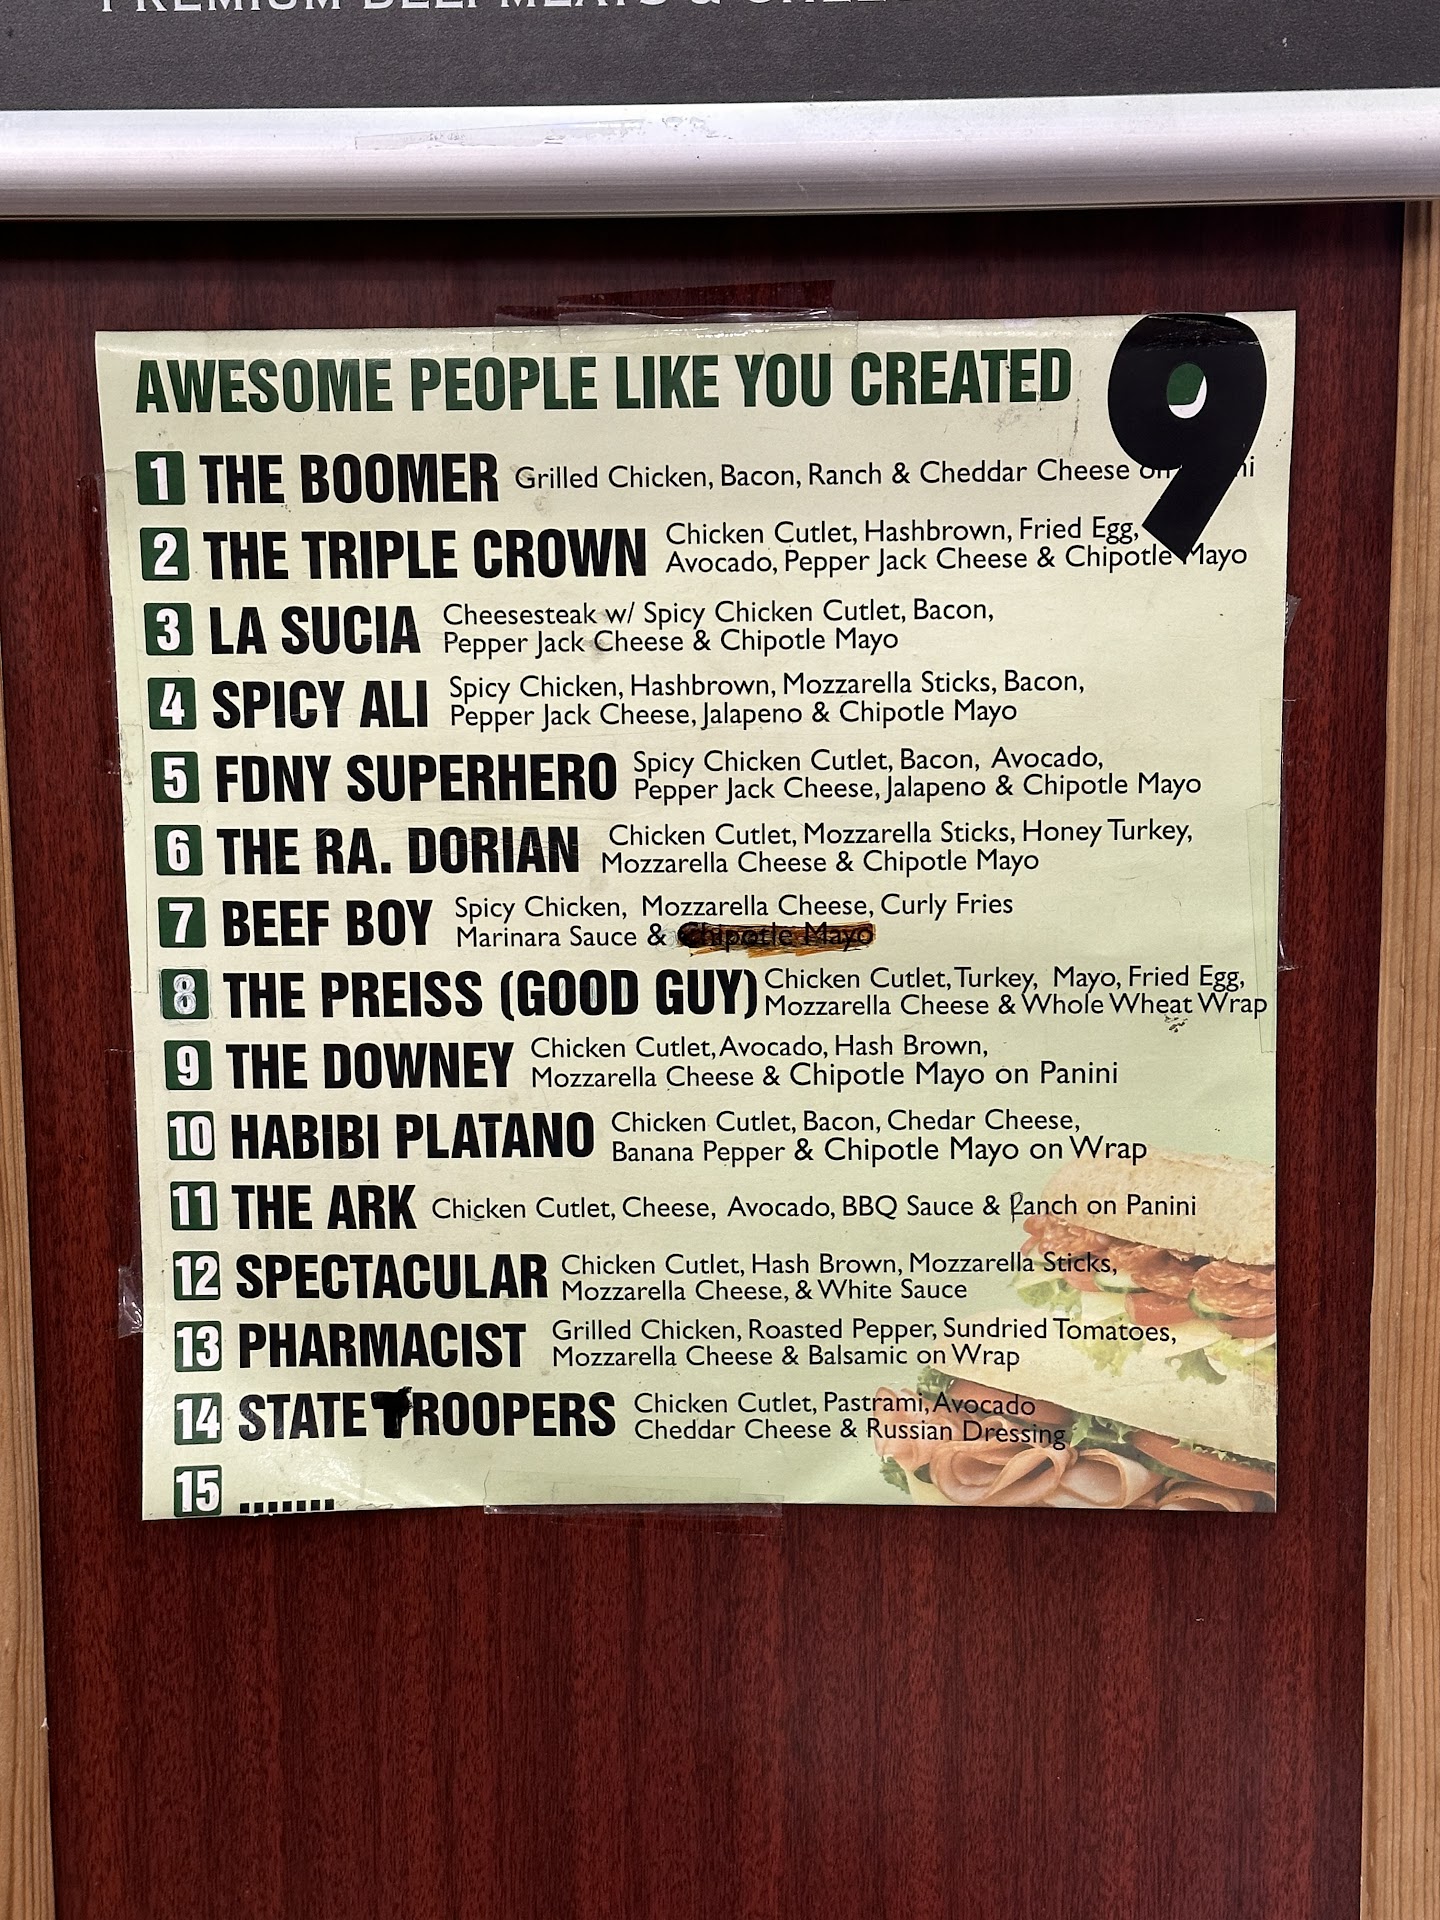 PREMIUM DELI MEATS &
AWESOME PEOPLE LIKE YOU CREATED
9
1 THE BOOMER Grilled Chicken, Bacon, Ranch & Cheddar Cheese on
2 THE TRIPLE CROWN Chicken Cutlet, Hashbrown, Fried Egg,
Avocado, Pepper Jack Cheese & Chipotle Mayo
3 LA SUCIA Cheesesteak w/ Spicy Chicken Cutlet, Bacon,
Pepper Jack Cheese & Chipotle Mayo
4 SPICY ALI Spicy Chicken, Hashbrown, Mozzarella Sticks, Bacon,
Pepper Jack Cheese, Jalapeno & Chipotle Mayo
5 FDNY SUPERHERO Spicy Chicken Cutlet, Bacon, Avocado,
Pepper Jack Cheese, Jalapeno & Chipotle Mayo
6 THE RA. DORIAN Chicken Cutlet, Mozzarella Sticks, Honey Turkey,
Mozzarella Cheese & Chipotle Mayo
7 BEEF BOY Spicy Chicken, Mozzarella Cheese, Curly Fries
Marinara Sauce & Chipotle Mayo
8 THE PREISS (GOOD GUY) Chicken Cutlet, Turkey, Mayo, Fried Egg,
Mozzarella Cheese & Whole Wheat Wrap
9 THE DOWNEY Chicken Cutlet, Avocado, Hash Brown,
Mozzarella Cheese & Chipotle Mayo on Panini
10 HABIBI PLATANO Chicken Cutlet, Bacon, Chedar Cheese,
Banana Pepper & Chipotle Mayo on Wrap
11 THE ARK Chicken Cutlet, Cheese, Avocado, BBQ Sauce & Ranch on Panini
12 SPECTACULAR Chicken Cutlet, Hash Brown, Mozzarella Sticks,
Mozzarella Cheese, & White Sauce
13 PHARMACIST Grilled Chicken, Roasted Pepper, Sundried Tomatoes,
Mozzarella Cheese & Balsamic on Wrap
14 STATE TROOPERS Chicken Cutlet, Pastrami, Avocado
Cheddar Cheese & Russian Dressing
15 .......